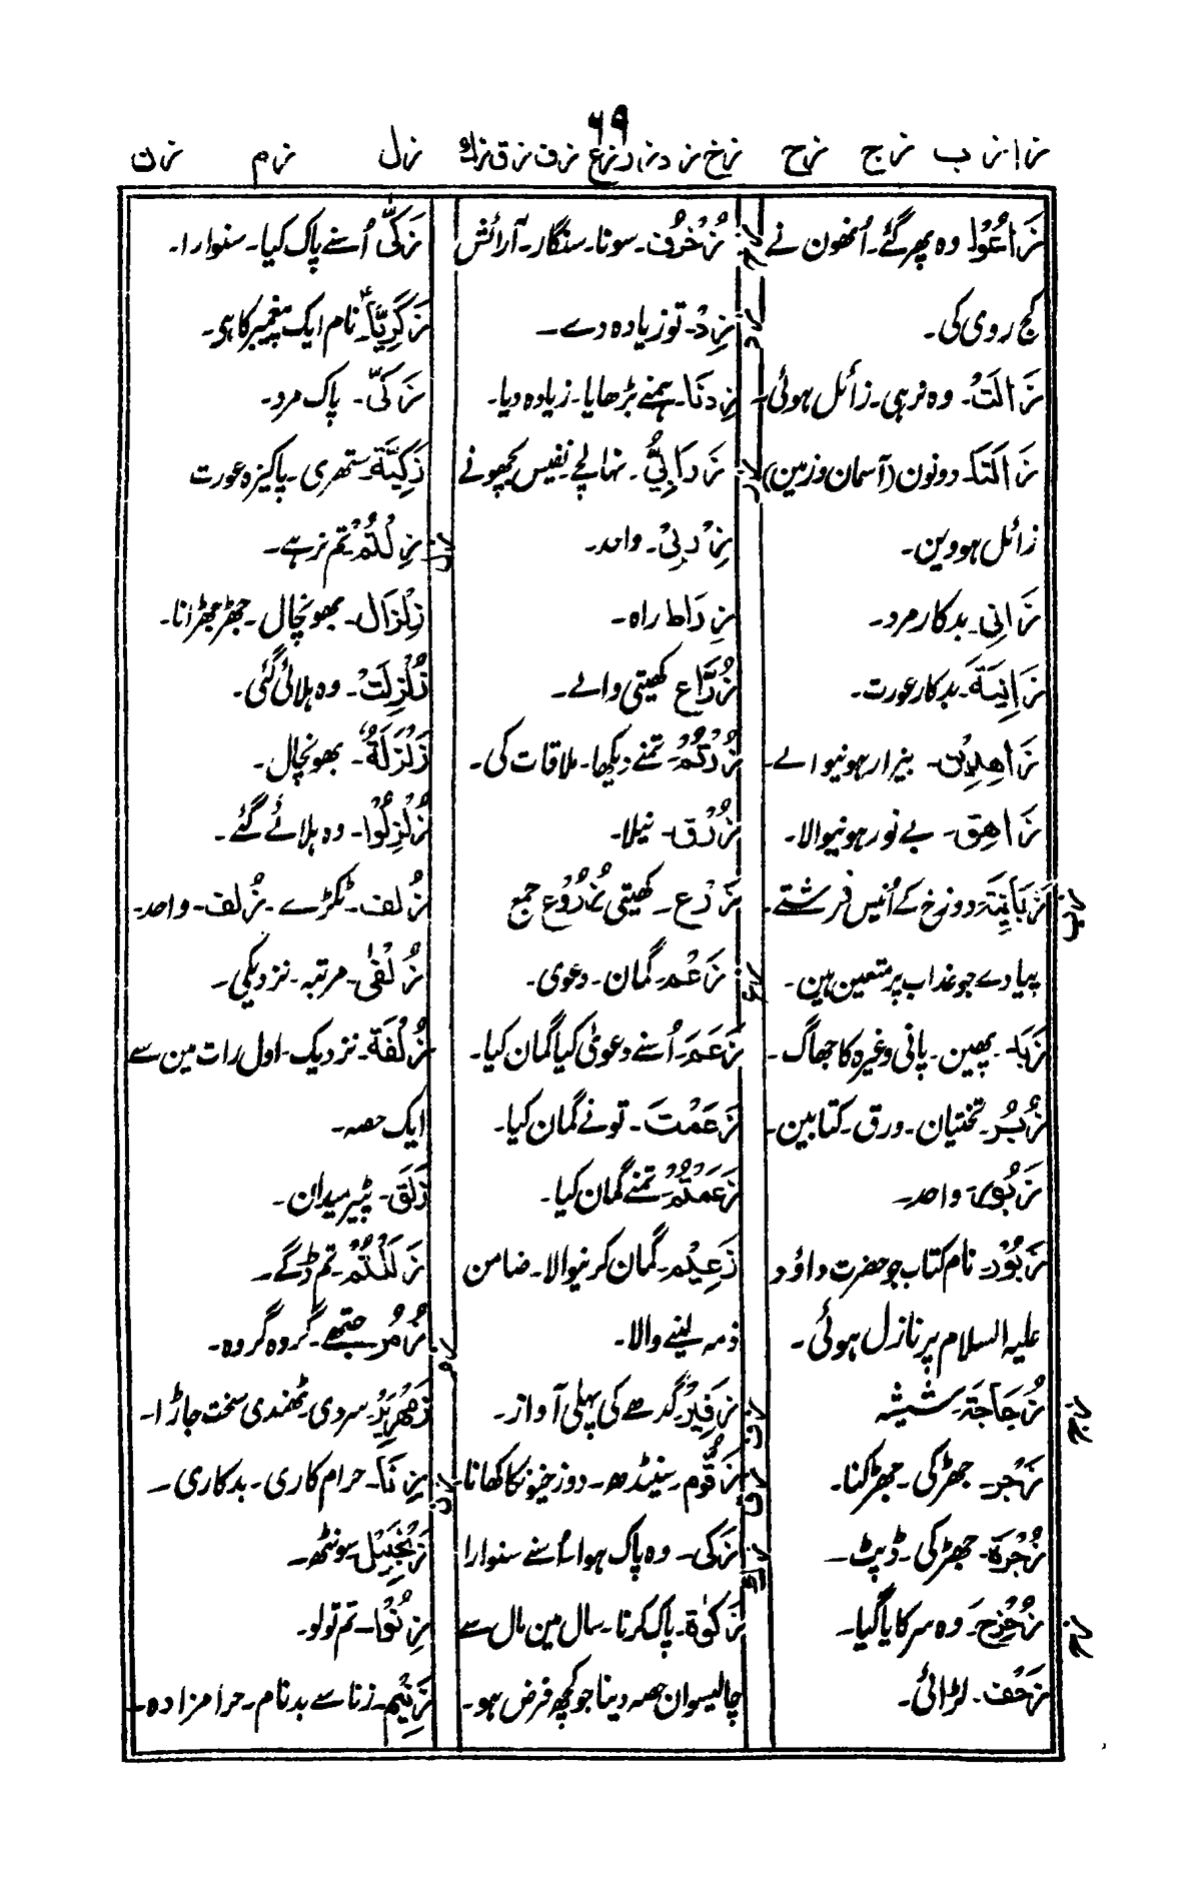 ٦٩
زا زب زج زح زخ زد زر زع زف زق زك زل زم زن
زَاغُوْا وہ پھر گئے۔ اُنھون نے
کج روی کی۔
زَالَتْ۔ وہ نرہی۔ زائل ہوئی۔
زَالَتَا۔ دونون (آسمان و زمین)
زائل ہووین۔
زَانِی۔ بدکار مرد۔
زَانِیَة۔ بدکار عورت۔
زَاهِدِیْن۔ بیزار ہونیوالے۔
زَاهِق۔ بے نور ہونیوالا۔
زب
زَبَانِیَة۔ دوزخ کے اُنیس فرشتے۔
پیادے جو عذاب پر متعین ہین۔
زَبَد۔ پھین۔ پانی وغیرہ کا جھاگ۔
زُبُر۔ تختیان۔ ورق۔ کتابین۔
زَبُوْر۔ واحد۔
زَبُوْر۔ نام کتاب جو حضرت داؤد
علیہ السلام پر نازل ہوئی۔
زج
زُجَاجَة۔ شیشہ
زَجْر۔ جھڑکی۔ جھڑکنا۔
زَجْرَة۔ جھڑکی۔ ڈپٹ۔
زح
زُحْزِحَ۔ وہ سرکایا گیا۔
زَحْف۔ لڑائی۔
زخ
زُخْرُف۔ سونا۔ سنگار۔ آرائش
زد
زِدْ۔ تو زیادہ دے۔
زِدْنَا۔ ہمنے بڑھایا۔ زیادہ دیا۔
زر
زَرَابِیُّ۔ نہالچے نفیس بچھونے
زِرْبِیْ۔ واحد۔
زِرَاط راہ۔
زُرَّاع کھیتی والے۔
زُرْتُمْ۔ تمنے دیکھا۔ ملاقات کی۔
زُرْق۔ نیلا۔
زَرْع۔ کھیتی زُرُوْع جمع
زع
زَعْم۔ گمان۔ دعوی۔
زَعَمَ۔ اُسنے دعویٰ کیا گمان کیا۔
زَعَمْتَ۔ تونے گمان کیا۔
زَعَمْتُمْ۔ تمنے گمان کیا۔
زَعِیْم۔ گمان کرنیوالا۔ ضامن
ذمہ لینے والا۔
زف
زَفِیْر۔ گدھے کی پہلی آواز۔
زق
زَقُّوْم۔ سینڈھ۔ دوزخیونکا کھانا۔
زك
زَکٰی۔ وہ پاک ہوا۔ اُسنے سنوارا
زَکٰوة۔ پاک کرنا۔ سال مین مال سے
چالیسوان حصہ دینا جو کچھ فرض ہو۔
زَکّٰی اُسنے پاک کیا۔ سنوارا۔
زَکَرِیَّا۔ نام ایک پیغمبر کا ہی۔
زَکِیّ۔ پاک مرد۔
زَکِیَّة۔ ستھری۔ پاکیزہ عورت
زل
زِلْتُمْ۔ تم نرہے۔
زِلْزَال۔ بھونچال۔ جھڑجھڑانا۔
زُلْزِلَتْ۔ وہ ہلائی گئی۔
زَلْزَلَةٌ۔ بھونچال۔
زُلْزِلُوْا۔ وہ ہلائے گئے۔
زُلَف۔ ٹکڑے۔ زُلف۔ واحد۔
زُلْفٰی۔ مرتبہ۔ نزدیکی۔
زُلْفَة۔ نزدیک۔ اول رات مین سے
ایک حصہ۔
زَلَق۔ پٹپر میدان۔
زَلَلْتُمْ۔ تم ڈگے۔
زم
زُمَر۔ جتھے۔ گروہ گروہ۔
زَمْهَرِیْر۔ سردی۔ ٹھنڈی سخت جاڑا۔
زن
زِنَا۔ حرام کاری۔ بدکاری۔
زَنْجَبِیْل سونٹھ۔
زِنُوْا۔ تم تولو۔
زَنِیْم۔ زنا سے بدنام۔ حرامزادہ۔